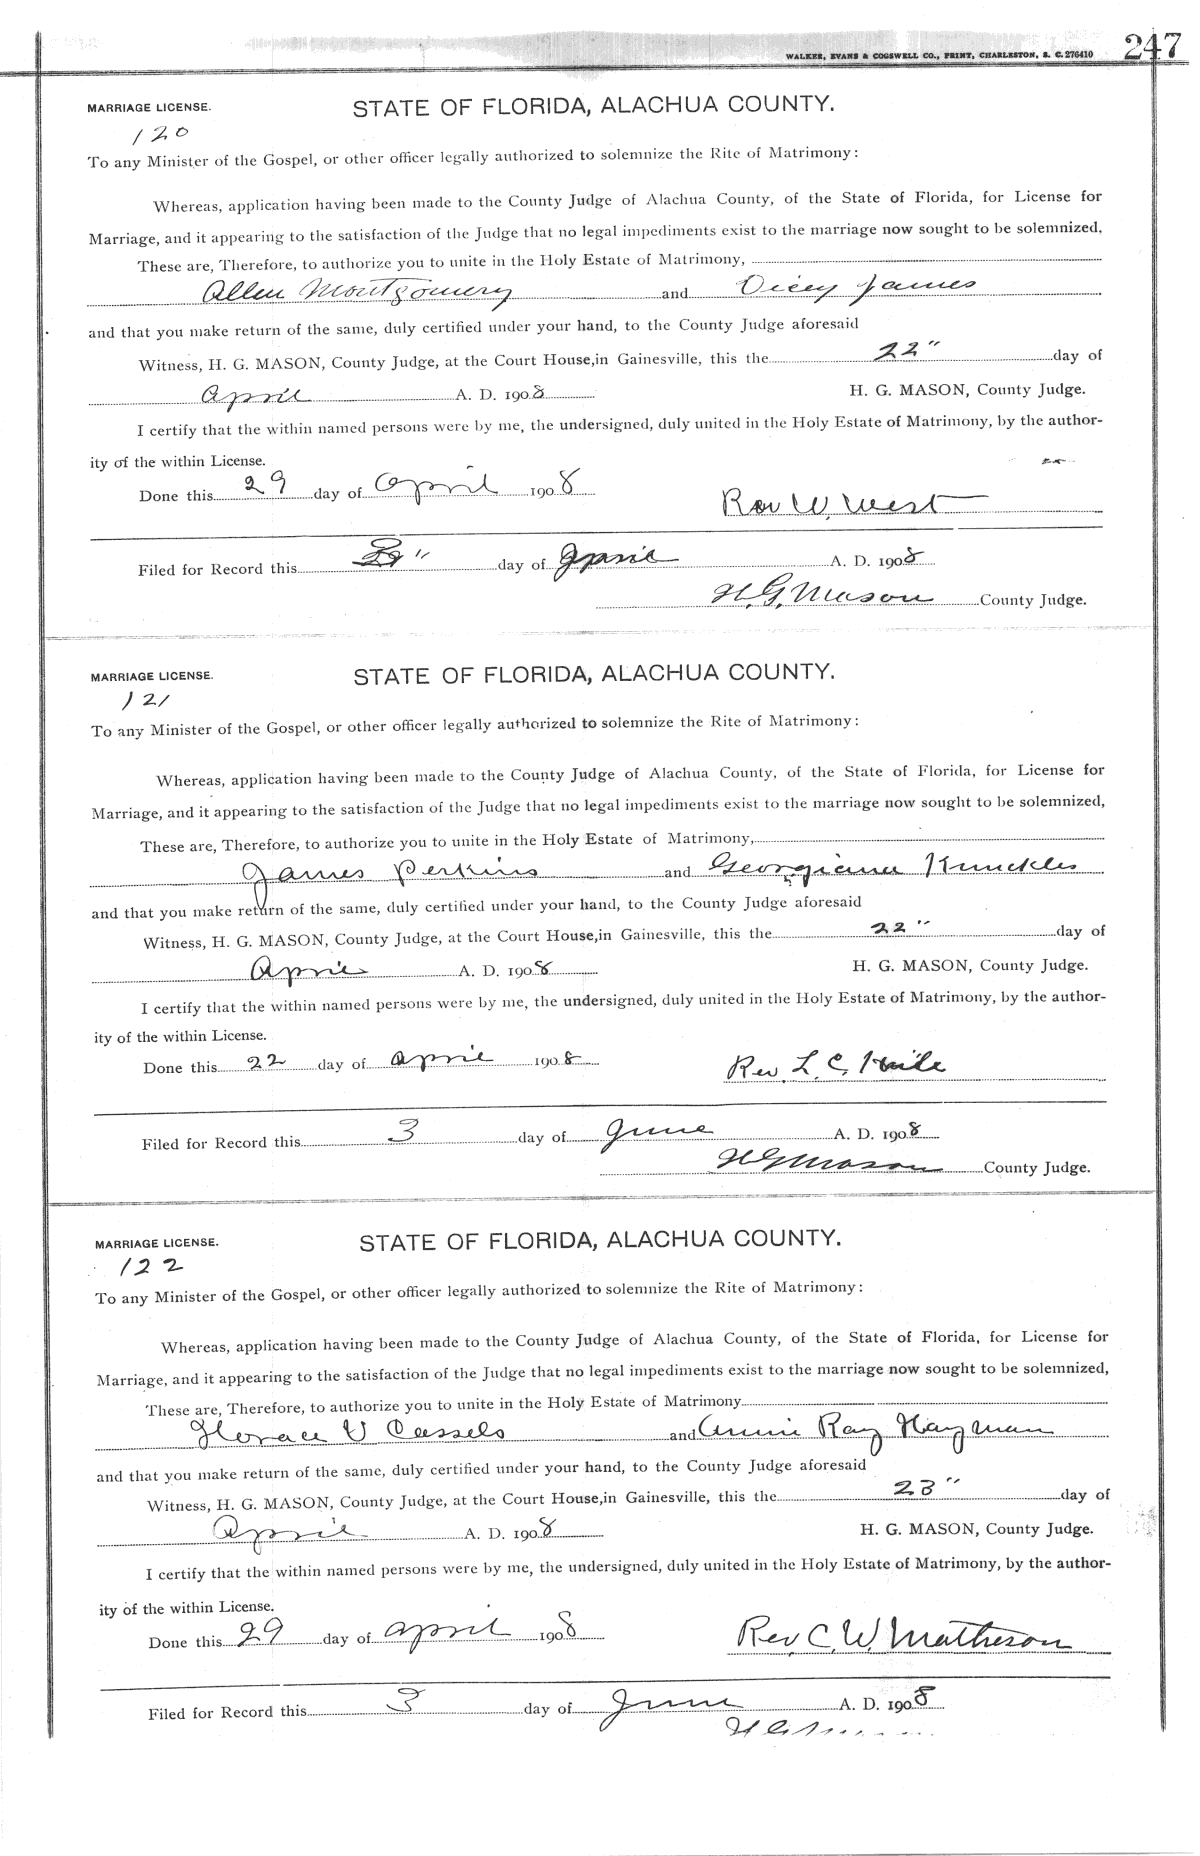 WALKER, EVANS & COGSWELL CO., PRINT, CHARLESTON, S. C. 276410 247
MARRIAGE LICENSE. STATE OF FLORIDA, ALACHUA COUNTY.
120
To any Minister of the Gospel, or other officer legally authorized to solemnize the Rite of Matrimony:
Whereas, application having been made to the County Judge of Alachua County, of the State of Florida, for License for
Marriage, and it appearing to the satisfaction of the Judge that no legal impediments exist to the marriage now sought to be solemnized,
These are, Therefore, to authorize you to unite in the Holy Estate of Matrimony,
Allen Montgomery and Dicey James
and that you make return of the same, duly certified under your hand, to the County Judge aforesaid
Witness, H. G. MASON, County Judge, at the Court House,in Gainesville, this the 22" day of
April A. D. 1908 H. G. MASON, County Judge.
I certify that the within named persons were by me, the undersigned, duly united in the Holy Estate of Matrimony, by the author-
ity of the within License.
Done this 29 day of April 1908
Rev W. West
Filed for Record this day of April A. D. 1908
H. G. Mason County Judge.
MARRIAGE LICENSE. STATE OF FLORIDA, ALACHUA COUNTY.
121
To any Minister of the Gospel, or other officer legally authorized to solemnize the Rite of Matrimony:
Whereas, application having been made to the County Judge of Alachua County, of the State of Florida, for License for
Marriage, and it appearing to the satisfaction of the Judge that no legal impediments exist to the marriage now sought to be solemnized,
These are, Therefore, to authorize you to unite in the Holy Estate of Matrimony,
James Perkins and Georgiana Knuckles
and that you make return of the same, duly certified under your hand, to the County Judge aforesaid
Witness, H. G. MASON, County Judge, at the Court House,in Gainesville, this the 22" day of
April A. D. 1908 H. G. MASON, County Judge.
I certify that the within named persons were by me, the undersigned, duly united in the Holy Estate of Matrimony, by the author-
ity of the within License.
Done this 22 day of April 1908 Rev. L. C. Haile
Filed for Record this 3 day of June A. D. 1908
H G Mason County Judge.
MARRIAGE LICENSE. STATE OF FLORIDA, ALACHUA COUNTY.
122
To any Minister of the Gospel, or other officer legally authorized to solemnize the Rite of Matrimony:
Whereas, application having been made to the County Judge of Alachua County, of the State of Florida, for License for
Marriage, and it appearing to the satisfaction of the Judge that no legal impediments exist to the marriage now sought to be solemnized,
These are, Therefore, to authorize you to unite in the Holy Estate of Matrimony
Horace V Cassels and Annie Ray Hayman
and that you make return of the same, duly certified under your hand, to the County Judge aforesaid
Witness, H. G. MASON, County Judge, at the Court House,in Gainesville, this the 23" day of
April A. D. 1908 H. G. MASON, County Judge.
I certify that the within named persons were by me, the undersigned, duly united in the Holy Estate of Matrimony, by the author-
ity of the within License.
Done this 29 day of April 1908 Rev. C. W. Matheson
Filed for Record this 3 day of June A. D. 1908